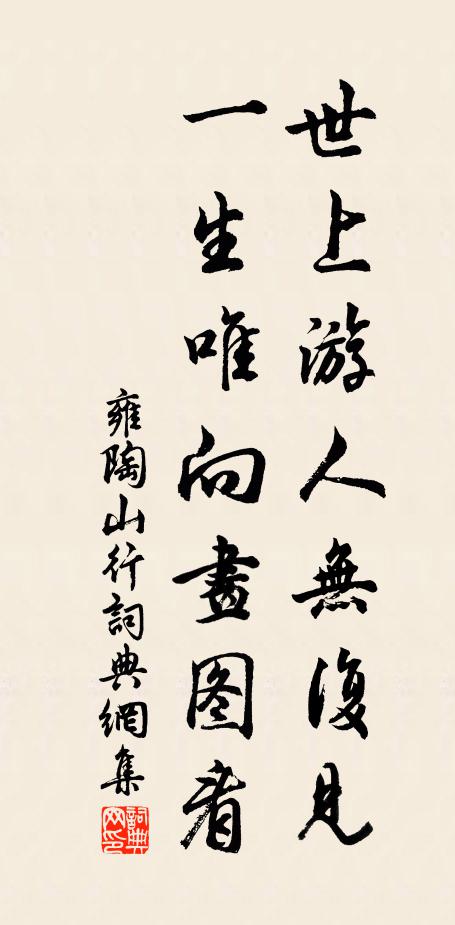 世上游人無復見
一生唯向畫图看
雍陶山行詞典網集
詞典网印